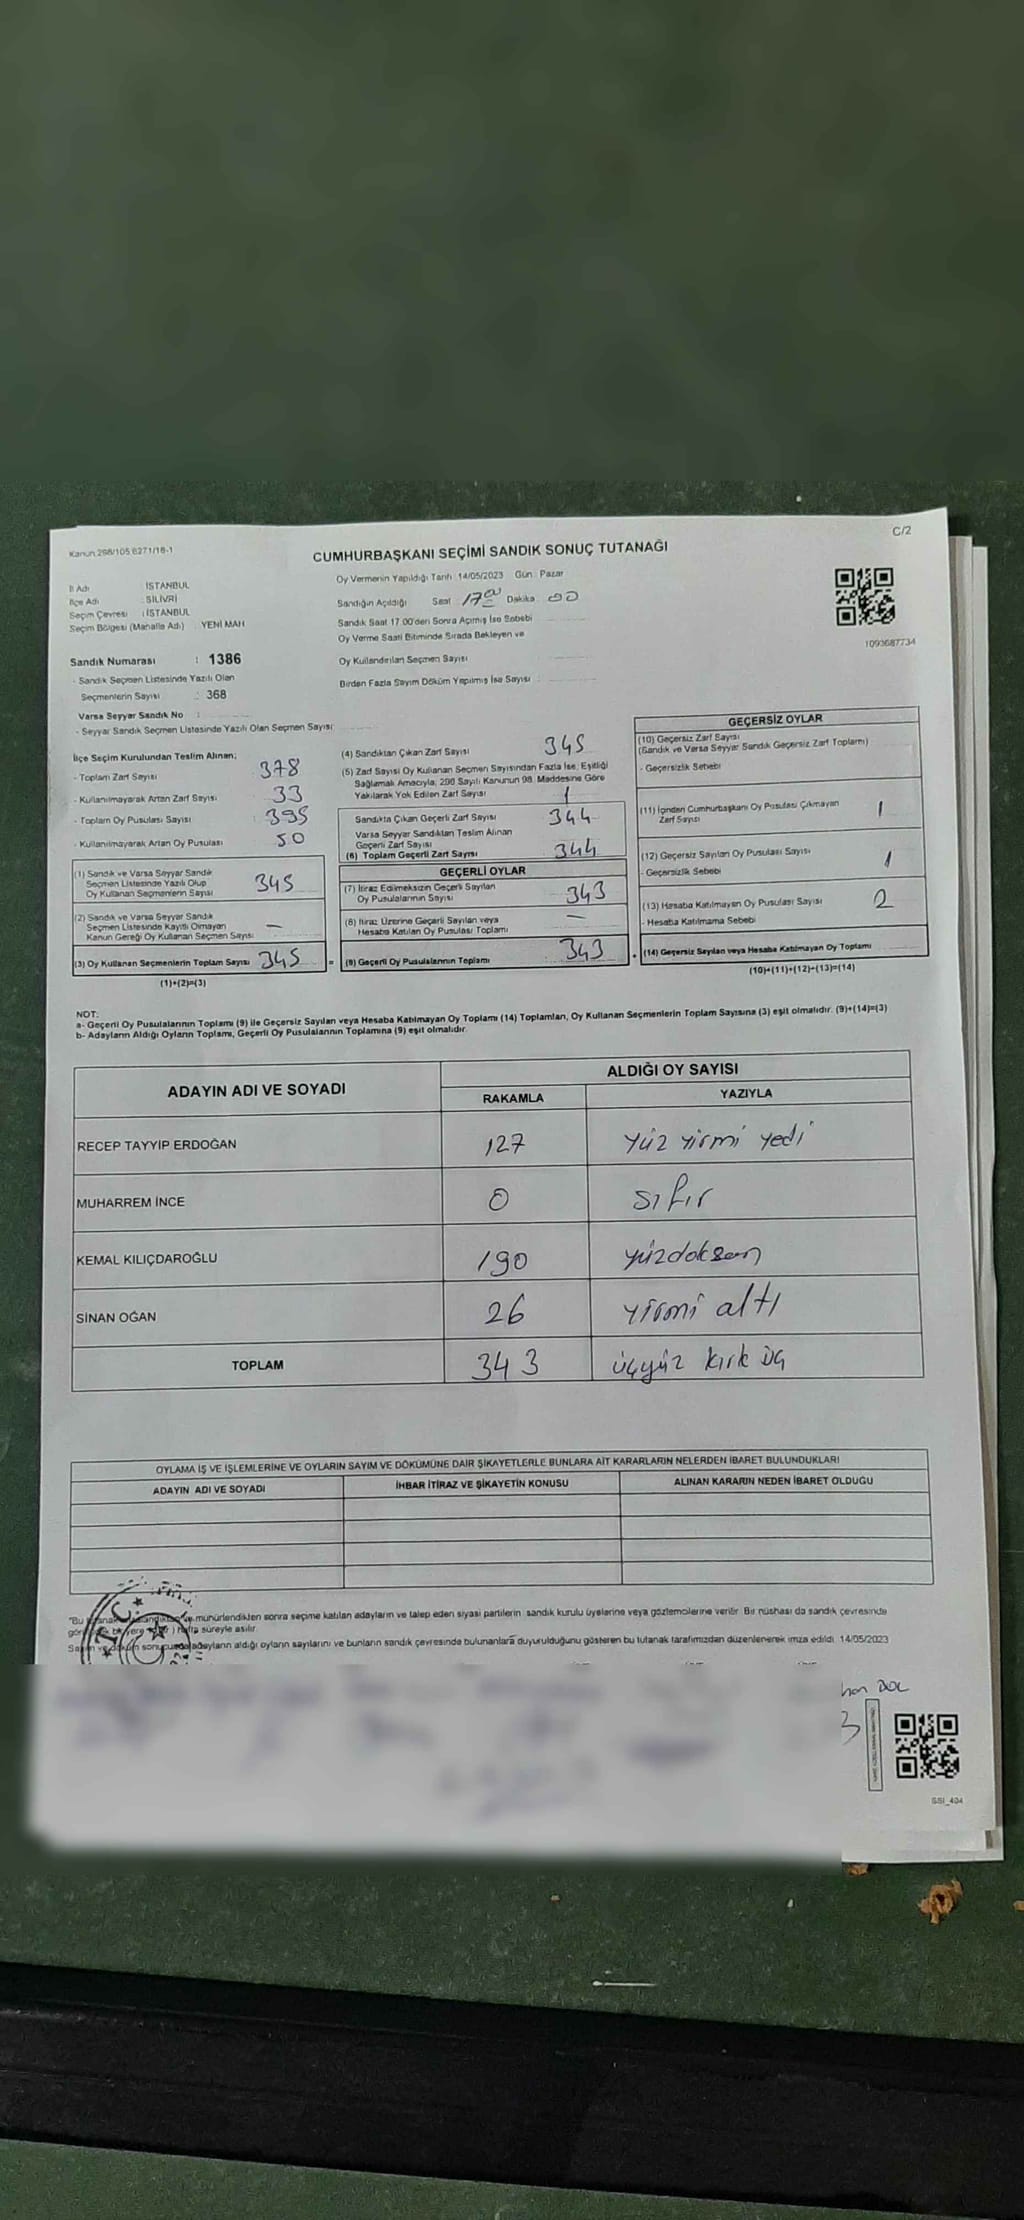 C/2
Kanun 298/105 6271/16-1
CUMHURBAŞKANI SEÇİMİ SANDIK SONUÇ TUTANAĞI
Oy Vermenin Yapıldığı Tarih 14/05/2023 Gün : Pazar
İl Adı : İSTANBUL
İlçe Adı : SİLİVRİ
Seçim Çevresi : İSTANBUL
Seçim Bölgesi (Mahalle Adı) : YENİ MAH
Sandığın Açıldığı Saat 17 00 Dakika 00
Sandık Saat 17.00'den Sonra Açmış İse Sebebi
Oy Verme Saati Bitiminde Sırada Bekleyen ve
Oy Kullandırılan Seçmen Sayısı
Birden Fazla Sayım Döküm Yapılmış İse Sayısı :
1093687734
Sandık Numarası : 1386
- Sandık Seçmen Listesinde Yazılı Olan
Seçmenlerin Sayısı : 368
Varsa Seyyar Sandık No :
- Seyyar Sandık Seçmen Listesinde Yazılı Olan Seçmen Sayısı:
İlçe Seçim Kurulundan Teslim Alınan;
- Toplam Zarf Sayısı 378
- Kullanılmayarak Artan Zarf Sayısı 33
- Toplam Oy Pusulası Sayısı 395
- Kullanılmayarak Artan Oy Pusulası 50
(1) Sandık ve Varsa Seyyar Sandık
Seçmen Listesinde Yazılı Olup
Oy Kullanan Seçmenlerin Sayısı 345
(2) Sandık ve Varsa Seyyar Sandık
Seçmen Listesinde Kayıtlı Olmayan
Kanun Gereği Oy Kullanan Seçmen Sayısı —
(3) Oy Kullanan Seçmenlerin Toplam Sayısı 345
(1)+(2)=(3)
(4) Sandıktan Çıkan Zarf Sayısı 345
(5) Zarf Sayısı Oy Kullanan Seçmen Sayısından Fazla İse, Eşitliği
Sağlamak Amacıyla, 298 Sayılı Kanunun 98. Maddesine Göre
Yakılarak Yok Edilen Zarf Sayısı 1
Sandıkta Çıkan Geçerli Zarf Sayısı 344
Varsa Seyyar Sandıktan Teslim Alınan
Geçerli Zarf Sayısı
(6) Toplam Geçerli Zarf Sayısı 344
GEÇERLİ OYLAR
(7) İtiraz Edilmeksizin Geçerli Sayılan
Oy Pusulalarının Sayısı 343
(8) İtiraz Üzerine Geçerli Sayılan veya
Hesaba Katılan Oy Pusulası Toplamı —
(9) Geçerli Oy Pusulalarının Toplamı 343
GEÇERSİZ OYLAR
(10) Geçersiz Zarf Sayısı
(Sandık ve Varsa Seyyar Sandık Geçersiz Zarf Toplamı)
- Geçersizlik Sebebi
(11) İçinden Cumhurbaşkanı Oy Pusulası Çıkmayan
Zarf Sayısı 1
(12) Geçersiz Sayılan Oy Pusulası Sayısı 1
- Geçersizlik Sebebi
(13) Hesaba Katılmayan Oy Pusulası Sayısı 2
- Hesaba Katılmama Sebebi
(14) Geçersiz Sayılan veya Hesaba Katılmayan Oy Toplamı
(10)+(11)+(12)+(13)=(14)
NOT:
a- Geçerli Oy Pusulalarının Toplamı (9) ile Geçersiz Sayılan veya Hesaba Katılmayan Oy Toplamı (14) Toplamları, Oy Kullanan Seçmenlerin Toplam Sayısına (3) eşit olmalıdır. (9)+(14)=(3)
b- Adayların Aldığı Oyların Toplamı, Geçerli Oy Pusulalarının Toplamına (9) eşit olmalıdır.
ADAYIN ADI VE SOYADI
ALDIĞI OY SAYISI
RAKAMLA YAZIYLA
RECEP TAYYİP ERDOĞAN 127 yüz yirmi yedi
MUHARREM İNCE 0 sıfır
KEMAL KILIÇDAROĞLU 190 yüzdoksan
SİNAN OĞAN 26 yirmi altı
TOPLAM 343 üçyüz kırk üç
OYLAMA İŞ VE İŞLEMLERİNE VE OYLARIN SAYIM VE DÖKÜMÜNE DAİR ŞİKAYETLERLE BUNLARA AİT KARARLARIN NELERDEN İBARET BULUNDUKLARI
ADAYIN ADI VE SOYADI İHBAR İTİRAZ VE ŞİKAYETİN KONUSU ALINAN KARARIN NEDEN İBARET OLDUĞU
"Bu mühürlendikten sonra seçime katılan adayların ve talep eden siyasi partilerin sandık kurulu üyelerine veya gözlemcilerine verilir. Bir nüshası da sandık çevresinde
hafta süreyle asılır.
adayların aldığı oyların sayılarını ve bunların sandık çevresinde bulunanlara duyurulduğunu gösteren bu tutanak tarafımızdan düzenlenerek imza edildi. 14/05/2023
T.C.
3
SSI_404